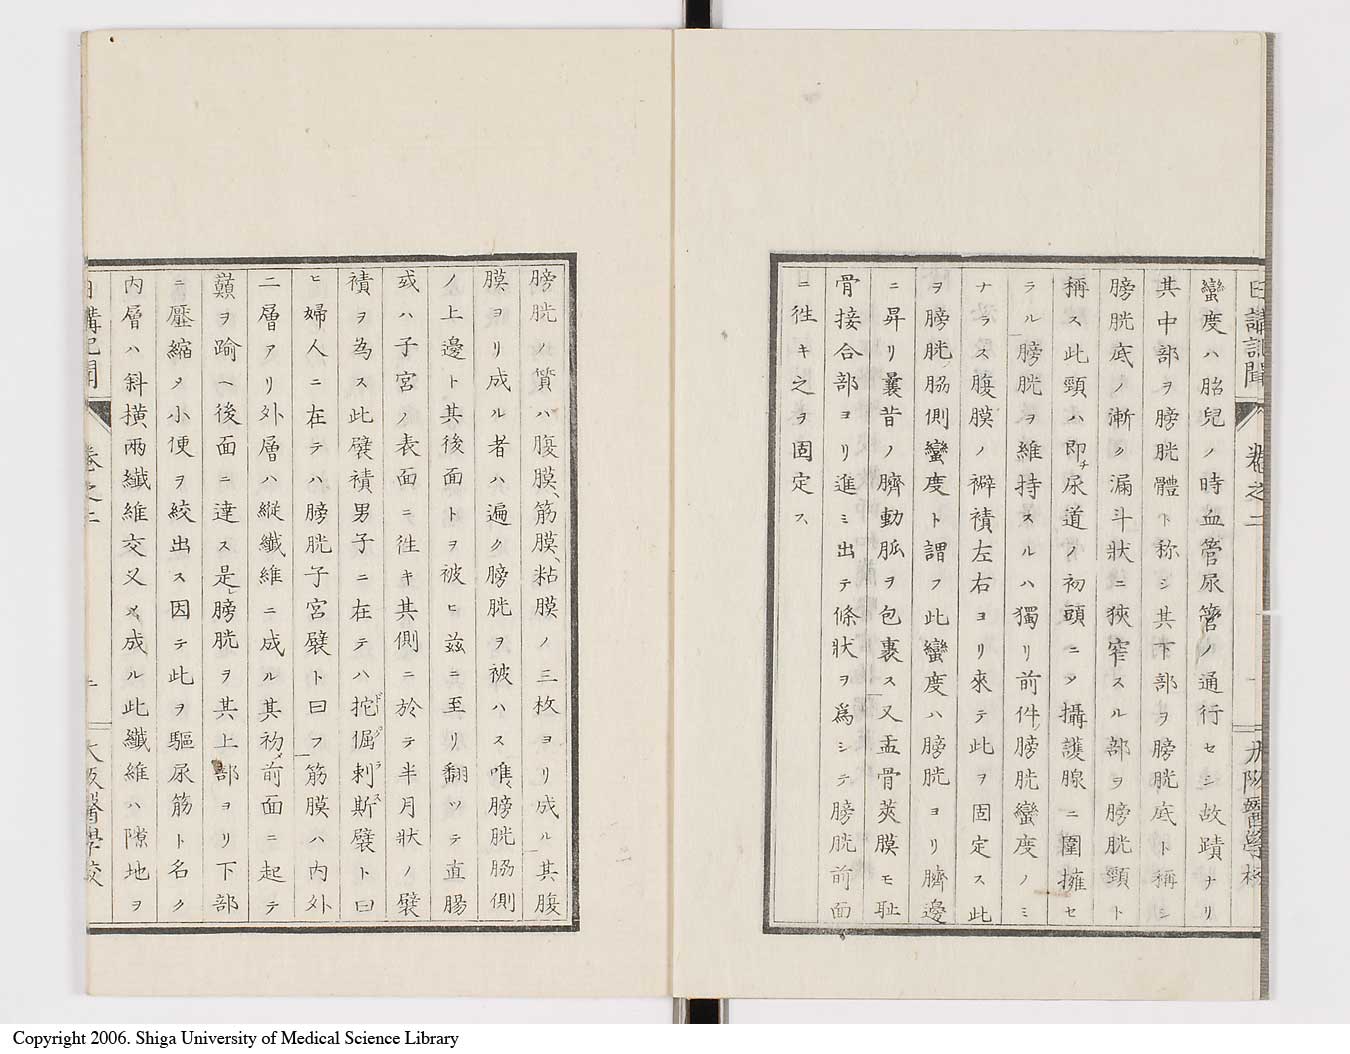 日講記聞 卷之二 大阪醫學校
蠻度ハ胎兒ノ時血管尿管ノ通行セシ故蹟ナリ
其中部ヲ膀胱體ト称シ其下部ヲ膀胱底ト稱シ
膀胱底ノ漸ク漏斗狀ニ狹窄スル部ヲ膀胱頸ト
稱ス此頸ハ即チ尿道ノ初頭ニメ攝護腺ニ圍擁セ
ラル膀胱ヲ維持スルハ獨リ前件ノ膀胱蠻度ノミ
ナラス腹膜ノ襞襀左右ヨリ來テ此ヲ固定ス此
ヲ膀胱ノ脇側蠻度ト謂フ此蠻度ハ膀胱ヨリ臍邊
ニ昇リ曩昔ノ臍動脈ヲ包裹ス又盂骨莢膜モ耻
骨接合部ヨリ進ミ出テ條狀ヲ爲シテ膀胱前面
ニ徃キ之ヲ固定ス
膀胱ノ質ハ腹膜、筋膜、粘膜ノ三枚ヨリ成ル其腹
膜ヨリ成ル者ハ遍ク膀胱ヲ被ハス唯膀胱脇側
ノ上邊ト其後面トヲ被ヒ茲ニ至リ翻ツテ直腸
或ハ子宮ノ表面ニ徃キ其側ニ於テ半月狀ノ襞
襀ヲ為ス此襞襀男子ニ在テハ拕倔剌斯襞ト曰
ドグラス
ヒ婦人ニ在テハ膀胱子宮襞ト曰フ筋膜ハ内外
二層アリ外層ハ縱纎維ニ成ル其初メ前面ニ起テ
巔ヲ踰ヘ後面ニ達ス是レ膀胱ヲ其上部ヨリ下部
ニ壓縮メ小便ヲ絞出ス因テ此ヲ驅尿筋ト名ク
内層ハ斜横兩纎維交叉メ成ル此纎維ハ隙地ヲ
日講記聞 卷之二 大阪醫學校